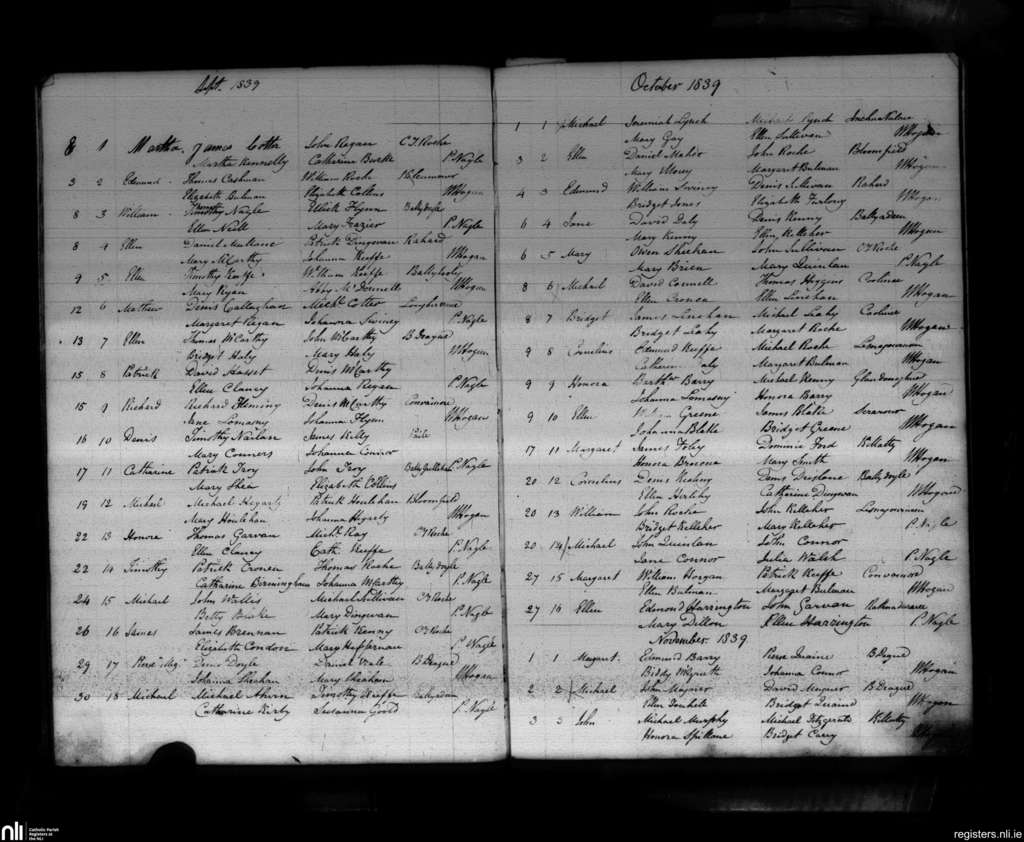 Sept. 1839
8 1 Martha James Cotter John Regan C.T.Roche
Martha Kennelly Catherine Bourke P. Nagle
3 2 Edmund Thomas Cashman William Roche Kilcummer
Elizabeth Bulman Elizabeth Collins WHogan
8 3 William Timothy Nagle Ellick Flynn Ballydoyle
Ellen Neill Mary Frazier P. Nagle
8 4 Ellen Daniel Mullane Patrick Dingwan Rahard
Mary McCarthy Johanna Keeffe WHogan
9 5 Ellen Timothy Keeffe William Keeffe
Mary Ryan Abby McDonnell WHogan
12 6 Mathew Denis Callaghan Michl. Cotter
Margaret Regan Johanna Swiney P. Nagle
13 7 Ellen Thomas McCarthy John McCarthy B Dragud
Bridget Haly Mary Haly WHogan
15 8 Patrick David Hasset Denis McCarthy
Ellen Clancy Johanna Regan P. Nagle
15 9 Richard Richard Fleming Denis McCarthy Convamore
Jane Lomasny Johanna Flynn WHogan
16 10 Denis Timothy James Kelly
Mary Connors Johanna Connor
17 11 Catharine Patrick Troy John Troy P. Nagle
Mary Shea Elizabeth Collins
19 12 Michael Michael Hegarty Patrick Houlehan Bloomfield
Mary Houlehan Johanna Hegarty WHogan
22 13 Honora Thomas Garvan Michl. Ray CTRoche
Ellen Clancy Cath. Keeffe P. Nagle
22 14 Timothy Patrick Cronen Thomas Roche Ballydoyle
Catharine Birmingham Johanna McCarthy P. Nagle
24 15 Michael John Wallis Michael Sullivan CTRoche
Betty Bourke Mary Dingwan P. Nagle
26 16 James James Brennan Patrick Kenny CTRoche
Elizabeth Condon Mary Heffernan P. Nagle
29 17 Denis Doyle Daniel Vale B Dragud
Johanna Sheehan Mary Sheehan WHogan
30 18 Michael Michael Ahern Timothy Keeffe Ballyadeen
Catharine Kirby Susanna Goold P. Nagle
October 1839
1 1 Michael Jeremiah Lynch Michael Lynch
Mary Gay Ellen Sullivan WHogan
3 2 Ellen Daniel Maher John Roche Bloomfield
Mary Morey Margaret Bulman WHogan
4 3 Edmund William Swiney Denis Sullivan Rahard
Bridget Jones Elizabeth Furlong WHogan
6 4 Jane David Daly Denis Kenny Ballyadeen
Mary Kenny Ellen Kelleher WHogan
6 5 Mary Owen Sheehan John Sullivan CTRoche
Mary Brien Mary Quinlan P. Nagle
8 6 Michael David Connell Thomas Higgins Carlinee
Ellen Cronen Ellen Linehan WHogan
8 7 Bridget James Linehan Michael Leahy Carline
Bridget Leahy Margaret Roche WHogan
9 8 Cornelius Edmund Keeffe Michael Roche
Catherine Daly Margaret Bulman WHogan
9 9 Honora Barthw. Barry Michael Kenny
Johanna Lomasny Honora Barry WHogan
9 10 Ellen Greene James Blake
Johanna Blake Bridget Greene WHogan
17 11 Margaret James Foley Dominic Ford Killatty
Honora Mary Smith WHogan
20 12 Cornelius Denis Keating Denis Drislane Ballydoyle
Ellen Herlihy Catharine Dingwan WHogan
20 13 William John Roche John Kelleher
Bridget Kelleher Mary Kelleher P. Nagle
20 14 Michael John Quinlan John Connor
Jane Connor Julia Walsh P. Nagle
27 15 Margaret William Horgan Patrick Keeffe Convamore
Ellen Bulman Margaret Bulman WHogan
27 16 Ellen Edmond Harrington John Garvan
Mary Dillon Ellen Harrington P. Nagle
November 1839
1 1 Margaret Edmund Barry Pierse Quaine B Dragud
Biddy McGrath Johanna Connor WHogan
2 2 Michael John Meagher David B. Dragud
Ellen Bridget Quaine WHogan
3 3 John Michael Murphy Michael Fitzgerald Killatty
Honora Spillane Bridget Carey
nli
Catholic Parish
Registers at
the NLI
registers.nli.ie